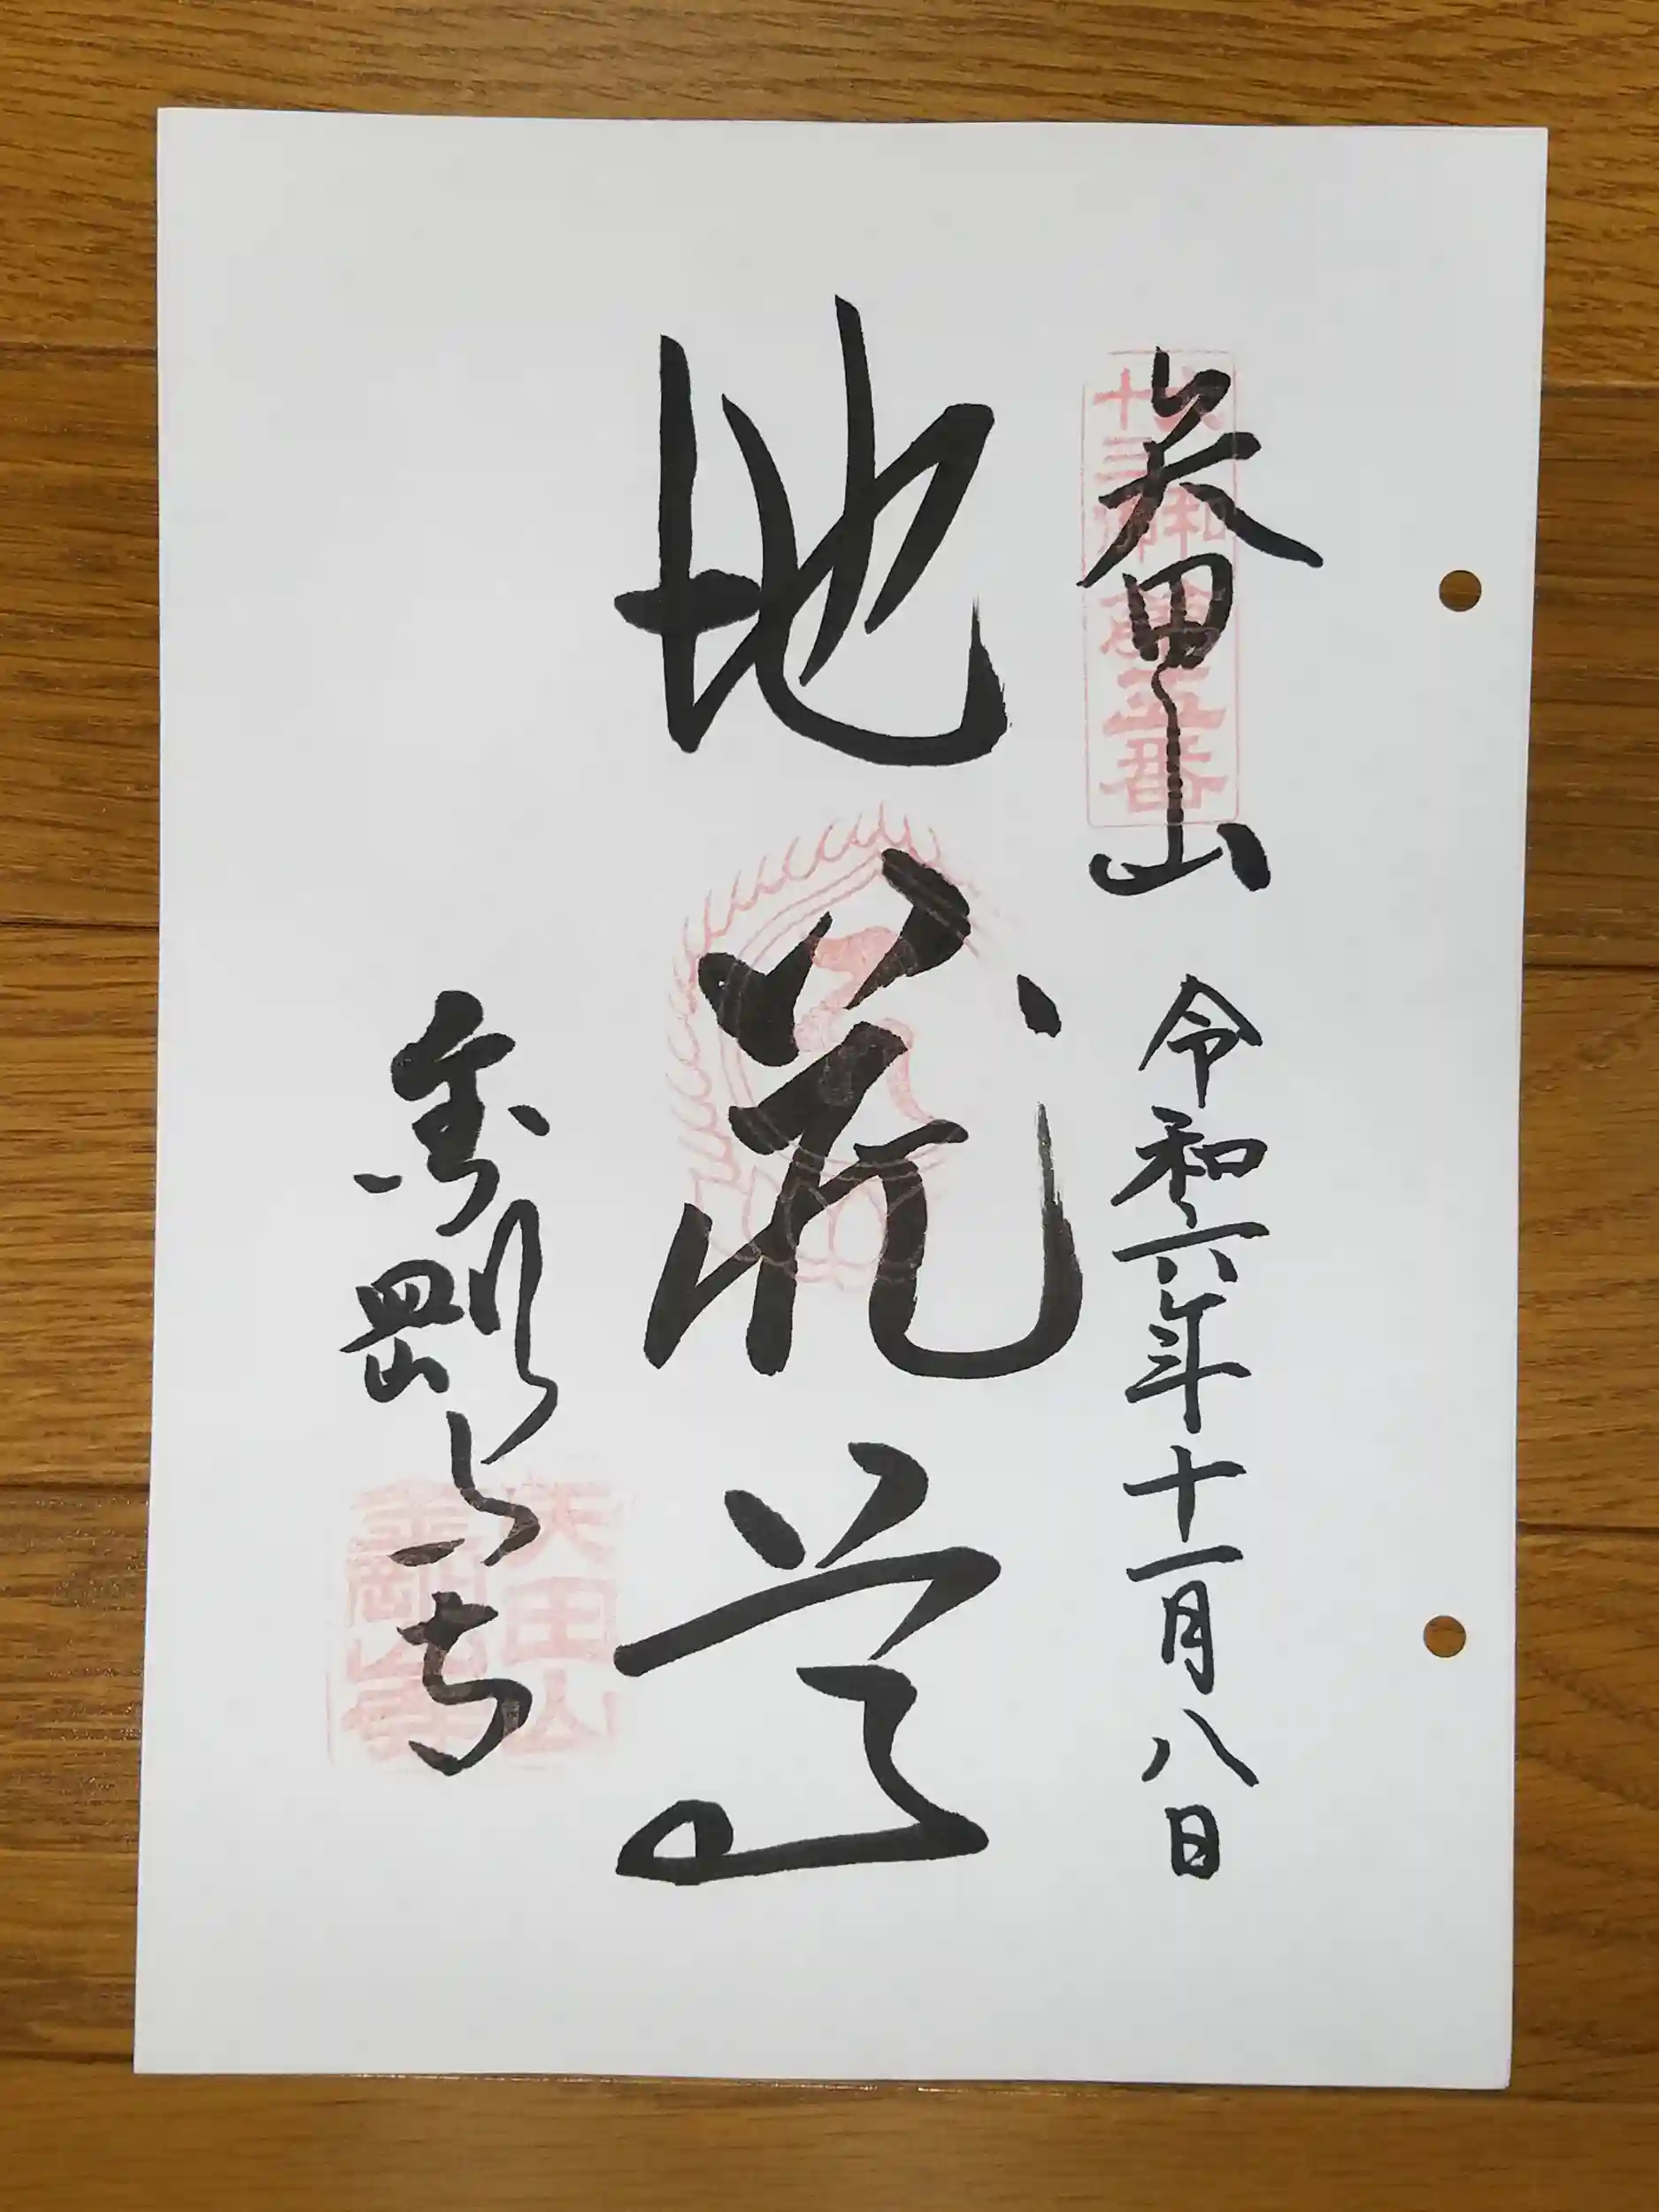 矢田山 令和六年十一月八日
地蔵堂
金剛山寺
大和
十三佛
第五番
矢田山
金剛山寺